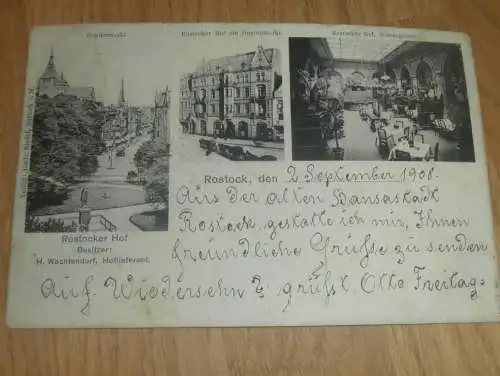 Hopfenmarkt
Rostocker Hof am Hopfenmarkt.
Rostocker Hof,
Rostock, den 2 September 1908.
Aus der alten Hansastadt
Rostocker Hof
Rostock, gestatte ich mir, Ihnen
Besitzer:
freundliche Grüsse zu senden
H. Wachtendorf, Hoflieferant.
Auf Wiedersehn & grüsst. Otto Freitag-